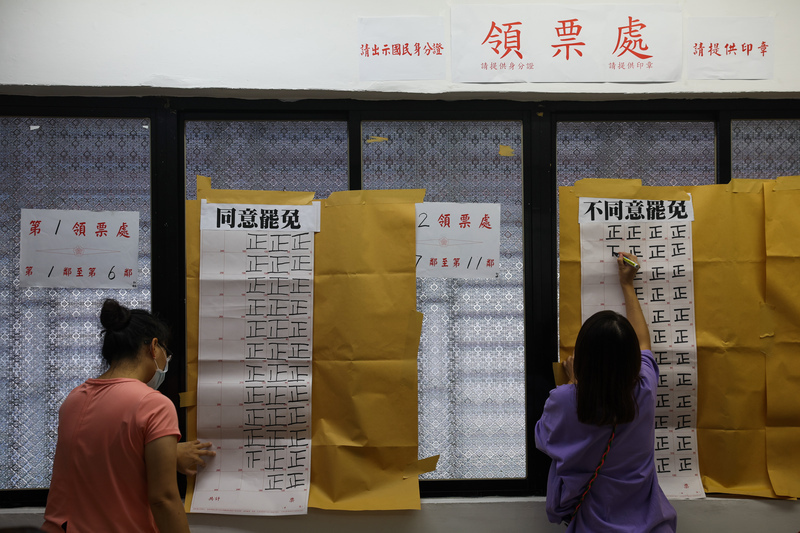 請出示國民身分證
領票處
請提供身分證
請提供印章
請提供印章
第1領票處
第1鄰至第6鄰
同意罷免
正正正
正正正
正正正
正正正
正正正
正正正
正正正
正正正
正正正
正正正
正正
正正
共計
票
2領票處
7
第11鄰
不同意罷免
正正正正
正正正
正正正
正正正
正正
正正
正正
正正
正正
正正
正正
正正